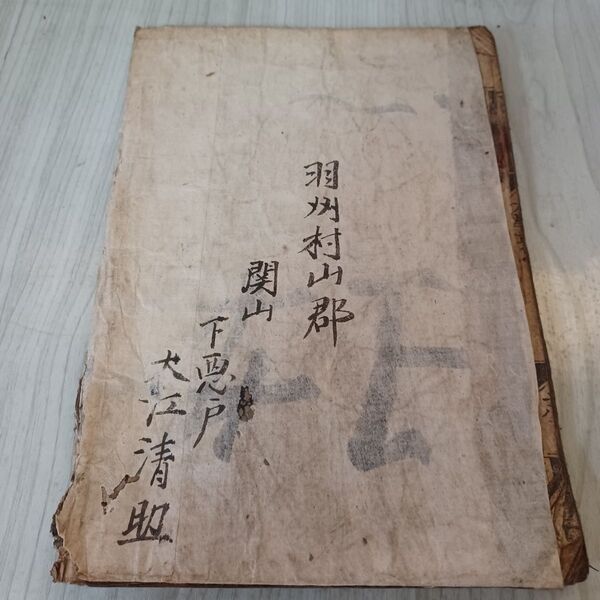 羽州村山郡
関山
下悪戸
大江清助